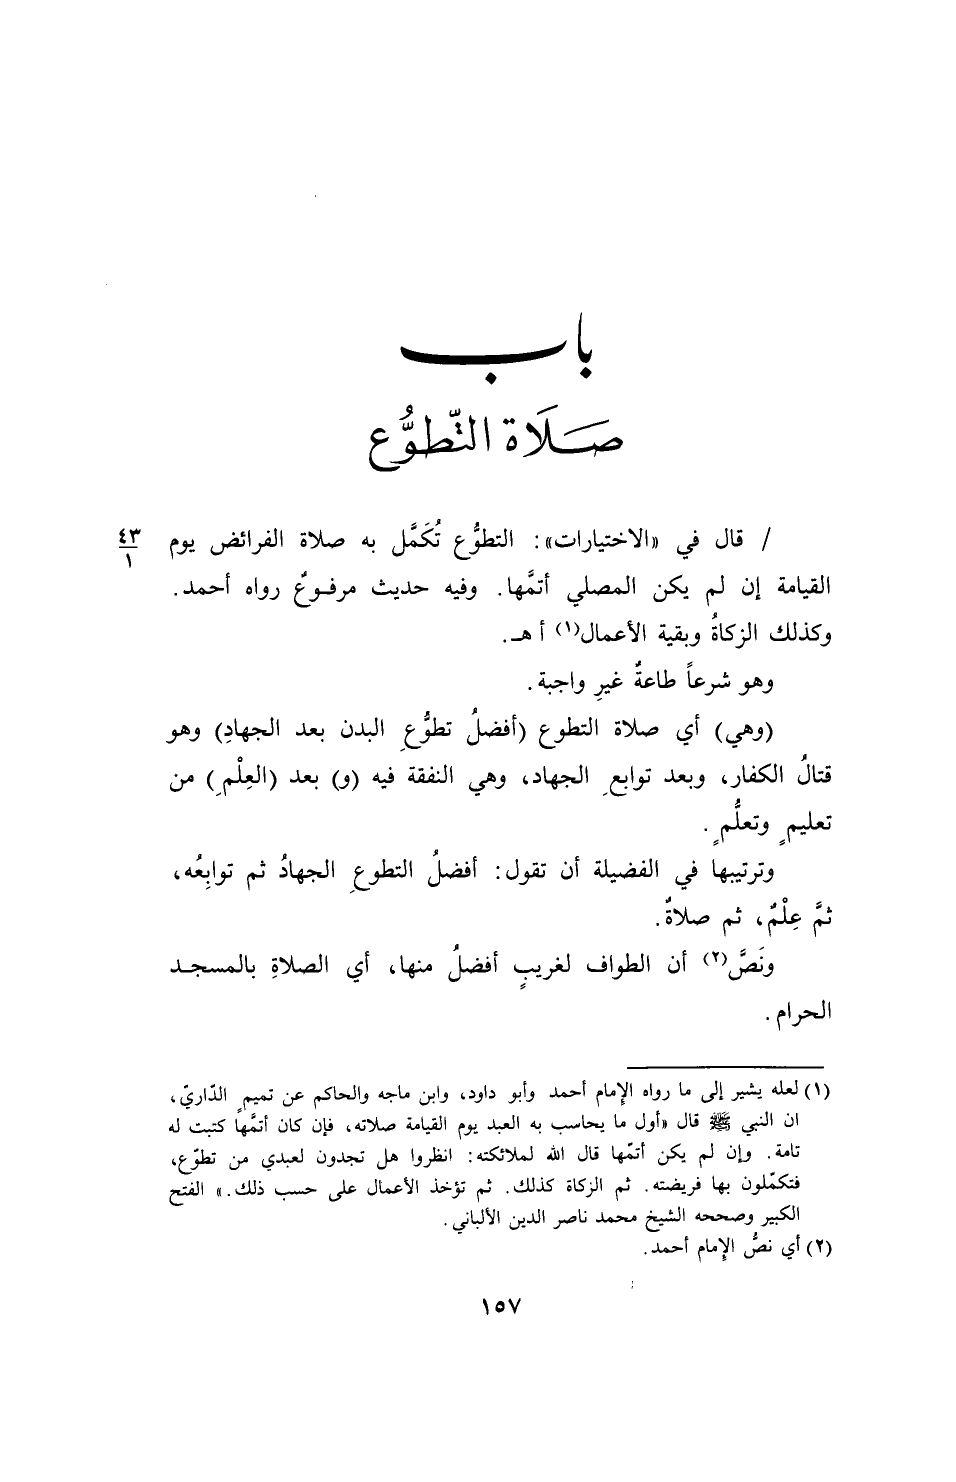 باب
صَلَاة التّطوُّع
/ قال في «الاختيارات»: التطوُّع تُكَمَّل به صلاة الفرائض يوم
٤٣
١
القيامة إن لم يكن المصلي أتمَّها. وفيه حديث مرفوعٌ رواه أحمد.
وكذلك الزكاةُ وبقية الأعمال(١) أ هـ.
وهو شرعاً طاعةٌ غيرِ واجبة.
(وهي) أي صلاة التطوع (أفضلُ تطوُّعِ البدن بعد الجهادِ) وهو
قتالُ الكفار، وبعد توابعِ الجهاد، وهي النفقة فيه (و) بعد (العِلْمِ) من
تعليمٍ وتعلُّمٍ.
وترتيبها في الفضيلة أن تقول: أفضلُ التطوعِ الجهادُ ثم توابِعُه،
ثمَّ عِلْمٌ، ثم صلاةٌ.
ونَصَّ(٢) أن الطواف لغريبٍ أفضلُ منها، أي الصلاةِ بالمسجد
الحرام.
(١) لعله يشير إلى ما رواه الإمام أحمد وأبو داود، وابن ماجه والحاكم عن تميمٍ الدّاريّ،
ان النبي ﷺ قال «أول ما يحاسب به العبد يوم القيامة صلاته، فإن كان أتمَّها كتبت له
تامة. وإن لم يكن أتمّها قال الله لملائكته: انظروا هل تجدون لعبدي من تطوّع،
فتكمّلون بها فريضته. ثم الزكاة كذلك. ثم تؤخذ الأعمال على حسب ذلك.» الفتح
الكبير وصححه الشيخ محمد ناصر الدين الألباني.
(٢) أي نصُّ الإمام أحمد.
١٥٧